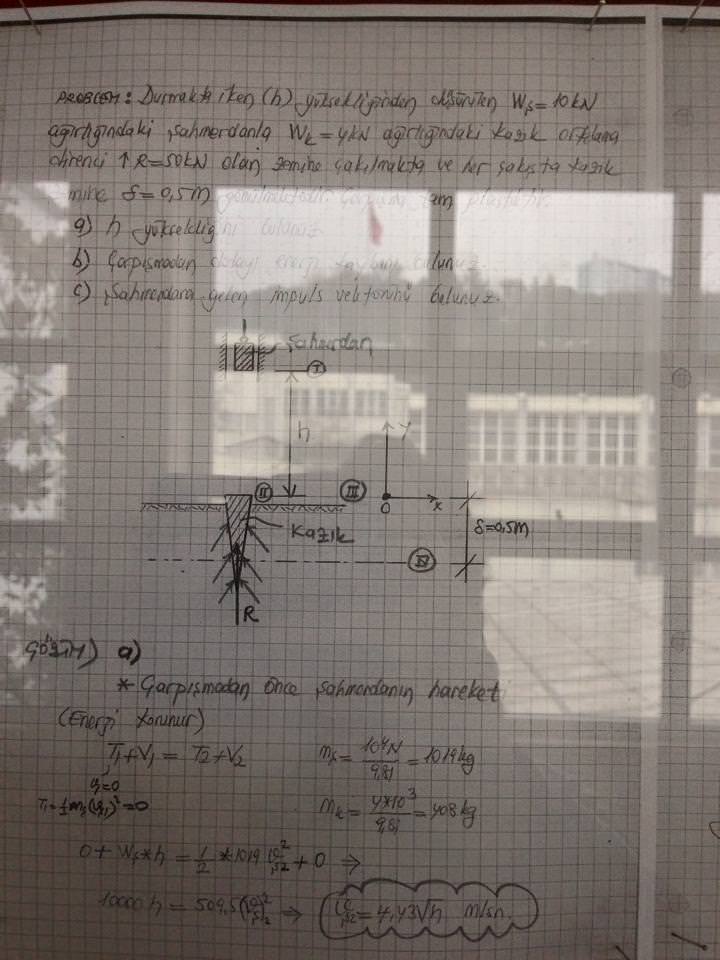 PROBLEM: Durmakta iken (h) yüksekliğinden düşürülen Wş = 10 kN
ağırlığındaki şahmerdanla Wk = 4 kN ağırlığındaki kazık ortalama
direnci ↑ R = 50 kN olan zemine çakılmakta ve her çakışta kazık
mine δ = 0,5 m gömülmektedir. Çarpışma tam plastiktir.
a) h yüksekliğini bulunuz
b) Çarpışmadan dolayı enerji kaybını bulunuz.
c) Şahmerdana gelen impuls vektörünü bulunuz.
Şahmerdan
I
h
y
II
III
O
x
Kazık
δ = 0,5 m
IV
R
ÇÖZÜM) a)
* Çarpışmadan önce şahmerdanın hareketi
(Enerji korunur)
T1 + V1 = T2 + V2
mş = 10^4 N / 9,81 = 1019 kg
mk = 4*10^3 / 9,81 = 408 kg
0 + Wş * h = 1/2 * 1019 ş2^2 + 0 ⇒
10000 h = 509,5 ( )^2 ⇒ ş2 = 4,43 √h m/sn.